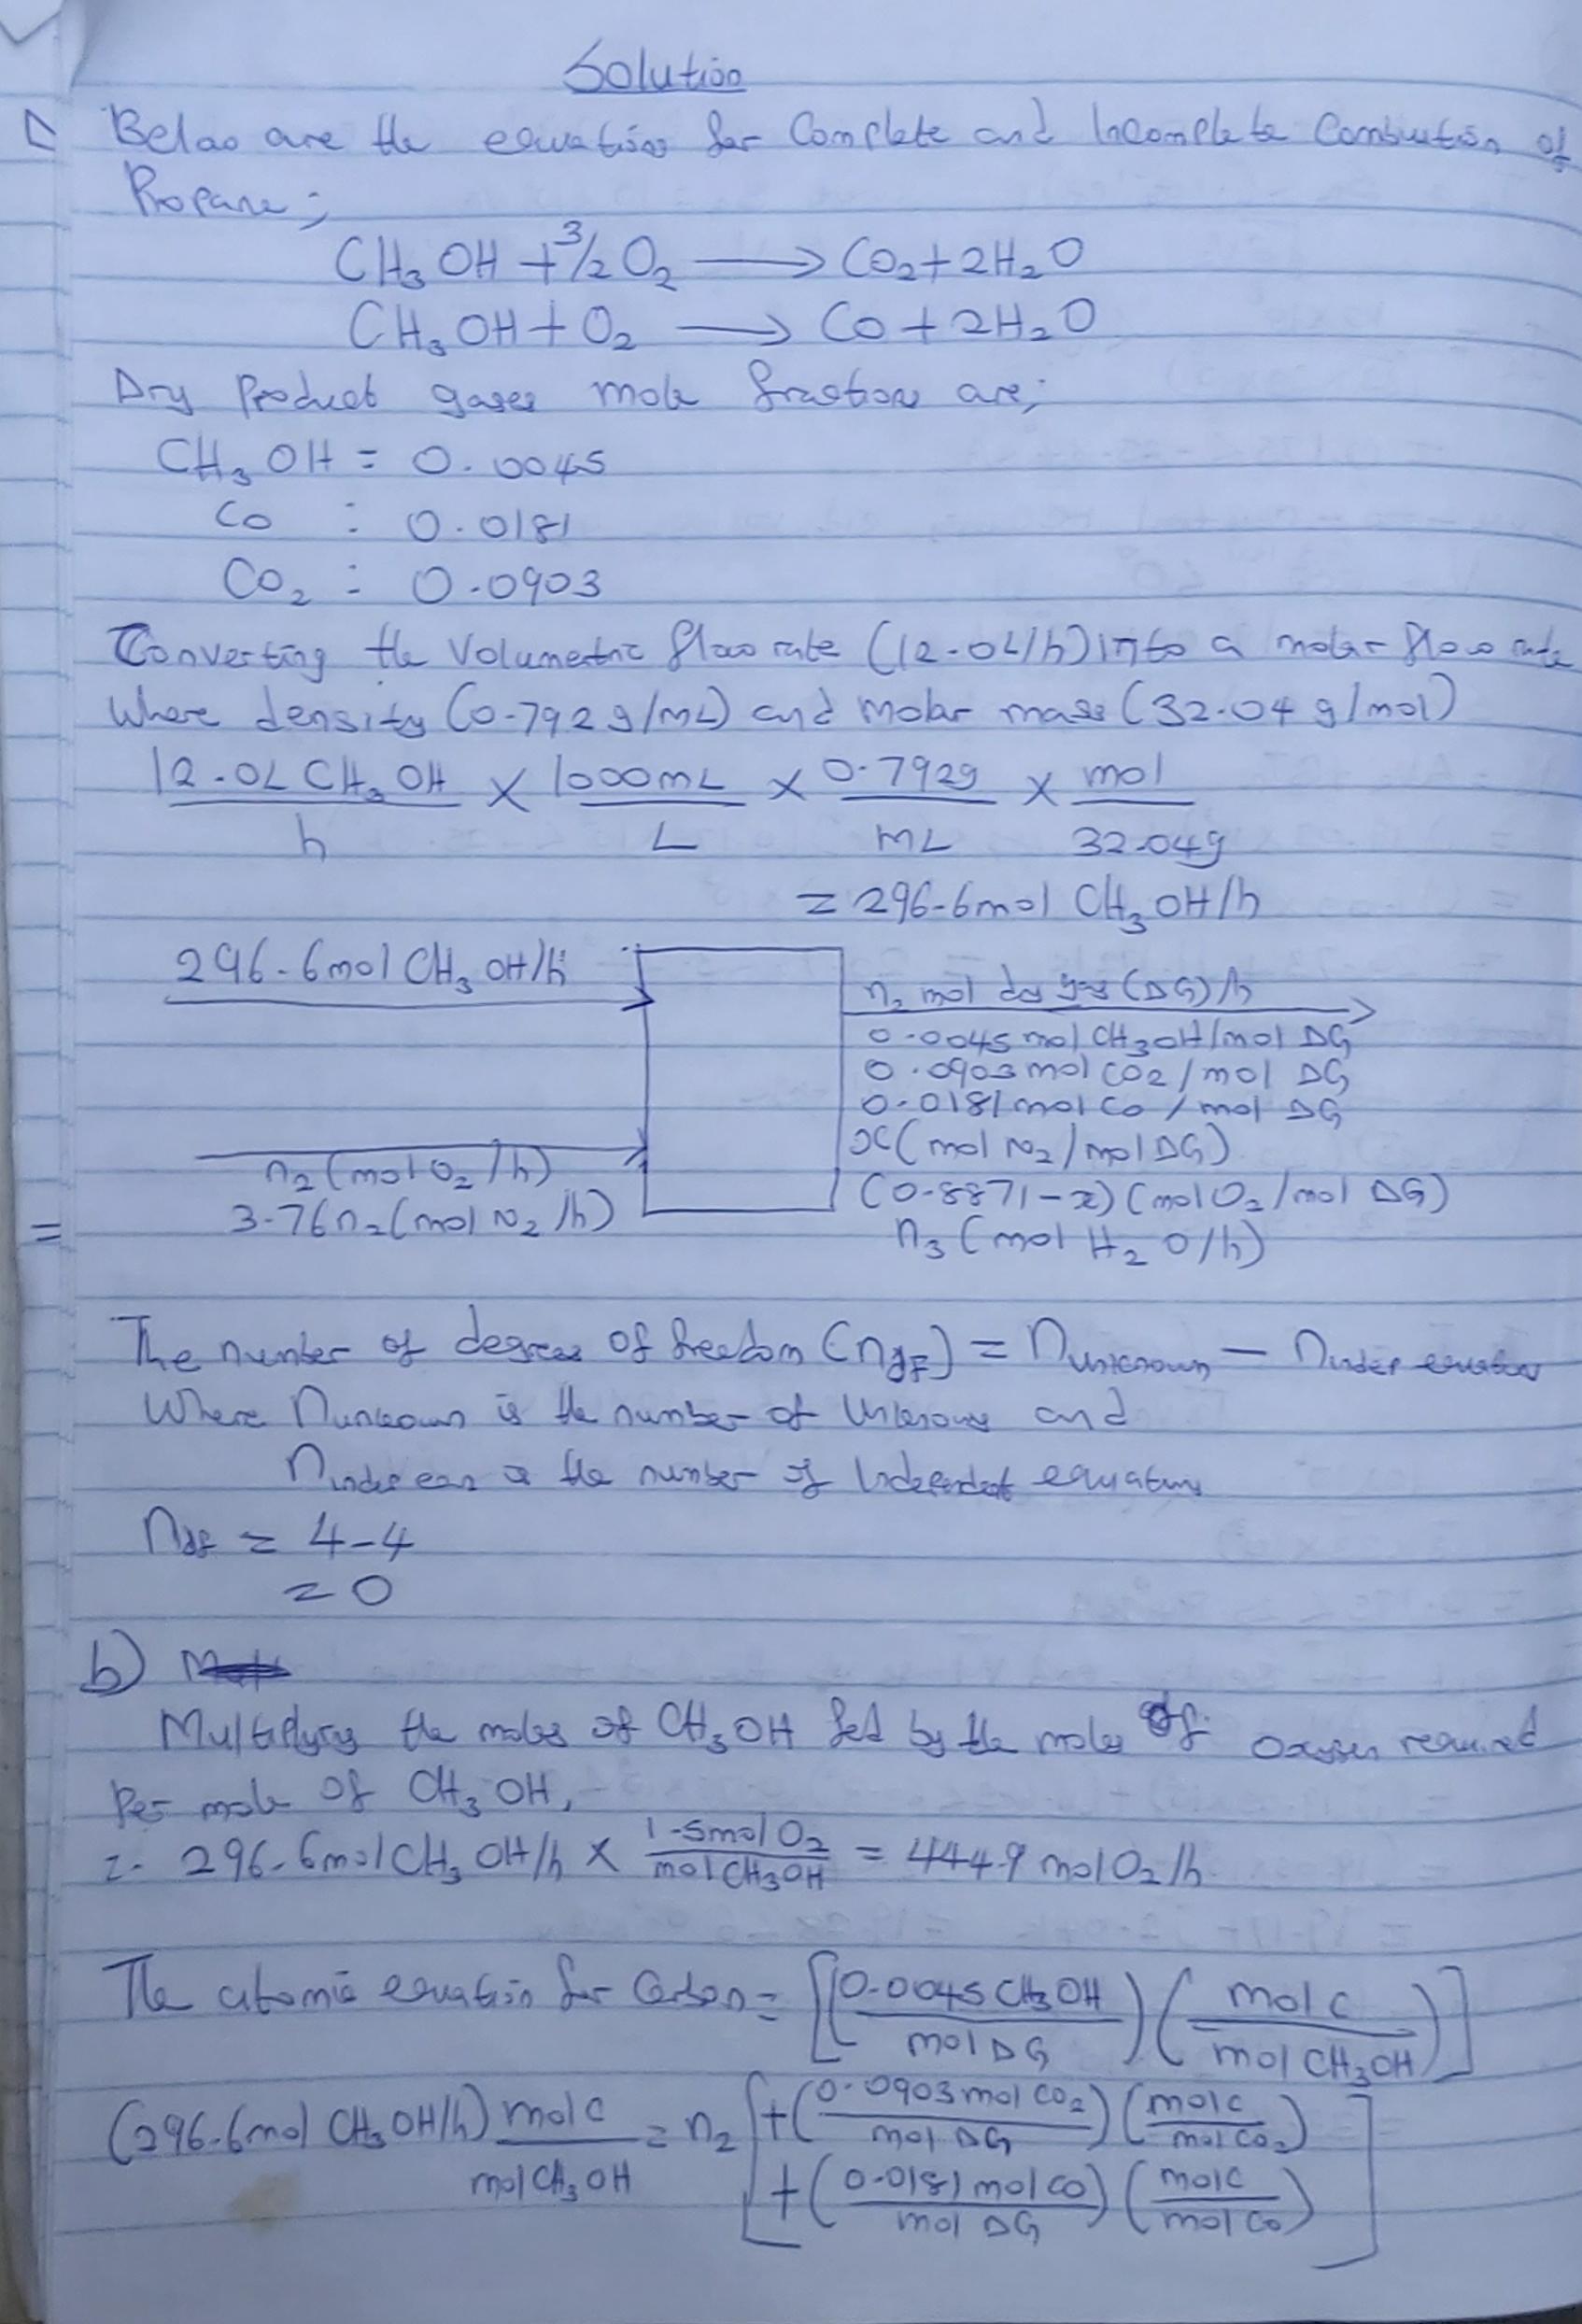 Solution
Below are the equations for Complete and Incomplete Combustion of
Propane;
CH₃OH + 3/2 O₂ → CO₂ + 2H₂O
CH₃OH + O₂ → CO + 2H₂O
Dry Product gases mole fractions are;
CH₃OH = 0.0045
CO : 0.0181
CO₂ : 0.0903
Converting the Volumetric flow rate (12.0L/h) into a molar flow rate
Where density (0.792g/mL) and molar mass (32.04 g/mol)
12.0L CH₃OH/h × 1000mL/L × 0.792g/mL × mol/32.04g
= 296.6mol CH₃OH/h
296.6mol CH₃OH/h
n₂ mol dry gas (DG)/h
0.0045 mol CH₃OH/mol DG
0.0903 mol CO2/mol DG
0.0181 mol CO/mol DG
x (mol N₂/mol DG)
n₂ (mol O₂/h)
(0.8871-x)(mol O₂/mol DG)
3.76n₂ (mol N₂/h)
n₃ (mol H₂O/h)
=
The number of degrees of freedom (ndf) = nunknown - nindep equation
Where nunknown is the number of unknowns and
nindep eqn is the number of Independent equations
ndf = 4-4
= 0
b)
Multiplying the moles of CH₃OH fed by the moles of oxygen required
Per mole of CH₃OH,
∴ 296.6mol CH₃OH/h × 1.5mol O₂/mol CH₃OH = 444.9 mol O₂/h.
The atomic equation for Carbon = [(0.0045 CH₃OH/mol DG)(mol C/mol CH₃OH)]
(296.6mol CH₃OH/h) mol C/mol CH₃OH = n₂ [+(0.0903 mol CO₂/mol DG)(mol C/mol CO₂)
+(0.0181 mol CO/mol DG)(mol C/mol CO)]